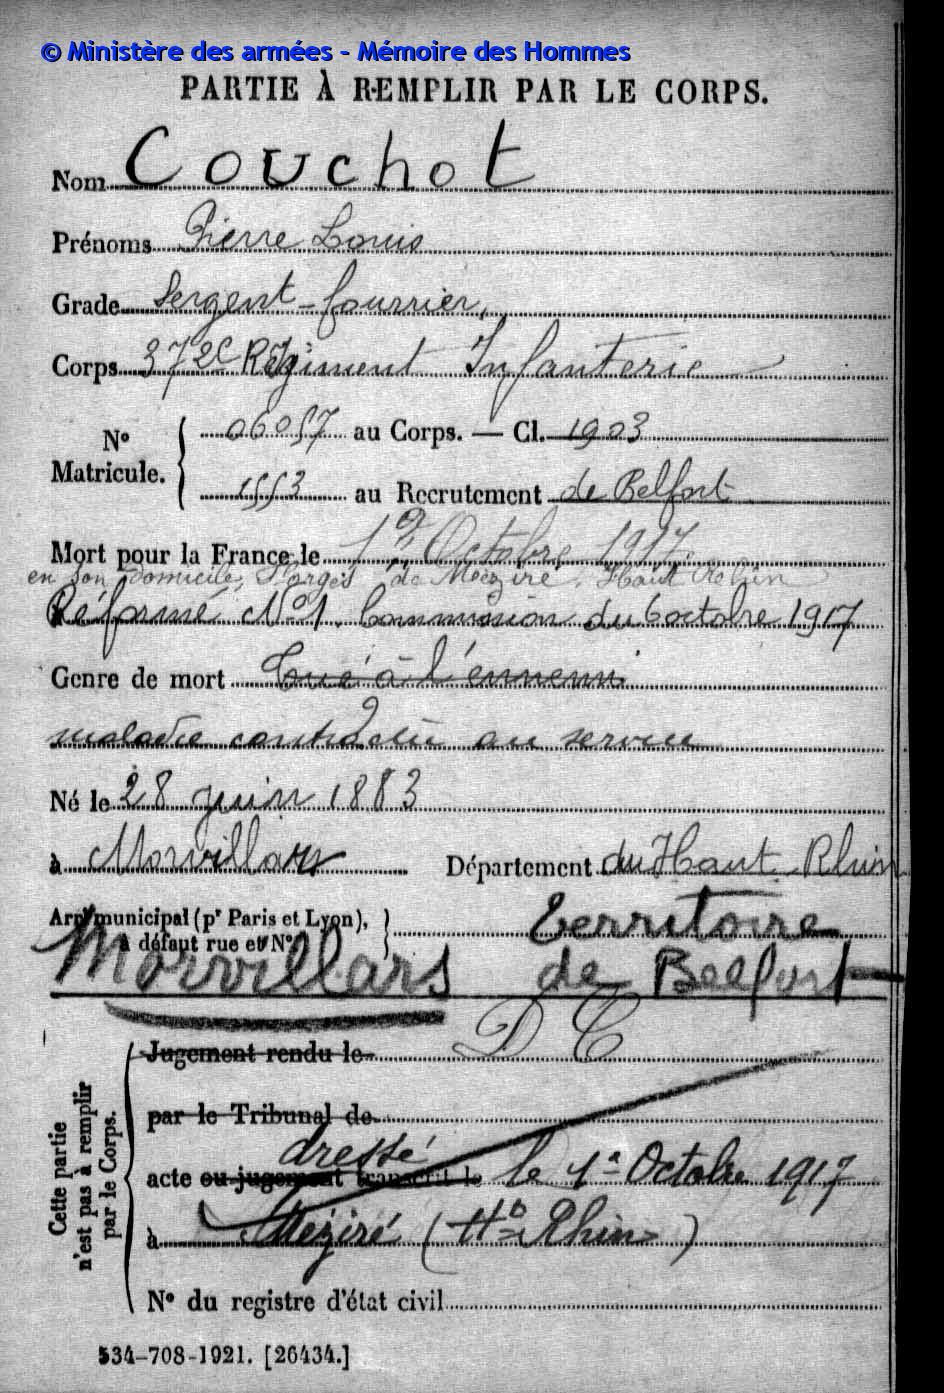 © Ministère des armées - Mémoire des Hommes
PARTIE À REMPLIR PAR LE CORPS.
Nom Couchot
Prénoms Pierre Louis
Grade Sergent-fourrier
Corps 372e Régiment Infanterie
N° Matricule. 06057 au Corps. — Cl. 1903
1553 au Recrutement de Belfort
Mort pour la France le 1er Octobre 1917
en son domicile, Forges de Méziré, Haut Rhin
Réformé No 1. Commission du 6 octobre 1917
Genre de mort Tué à l'ennemi
maladie contractée au service
Né le 28 juin 1883
à Morvillars Département du Haut Rhin
Arrt municipal (pr Paris et Lyon), à défaut rue et N°. Territoire
Morvillars de Belfort
D C
Jugement rendu le
par le Tribunal de
dressé
acte ou jugement transcrit le le 1er Octobre 1917
à Méziré (Ht Rhin)
N° du registre d'état civil
Cette partie n'est pas à remplir par le Corps.
534-708-1921. [26434.]